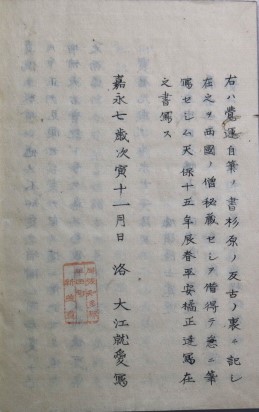 右ハ鷺運自筆ノ書杉原ノ反古ノ裏ニ記シ
在之ヲ西國ノ僧秘蔵セシヲ借得テ意ニ筆
寫セシム天保十五年辰春平安橘正達寫在
文書寫ス
嘉永七歳次寅十一月日 洛 大江就愛寫